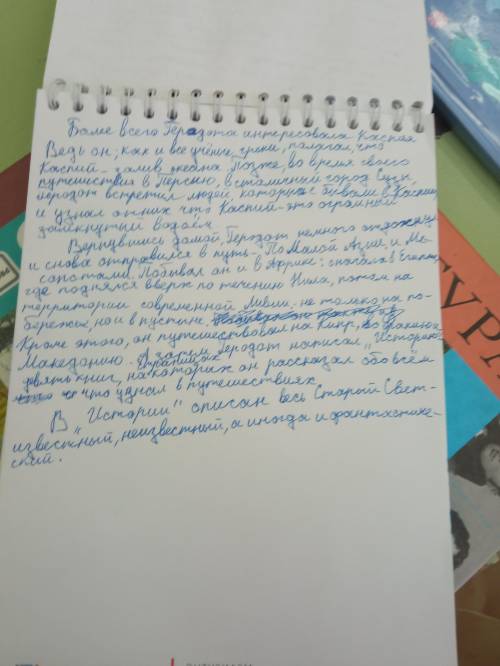 Более всего Геродота интересовала Каспия
Ведь он, как и все учёные греки, полагал, что
Каспий - залив океана. Позже, во время своего
путешествия в Персию, в столичный город Сузы
Геродот встретил людей, которые бывали в Каспии,
и узнал от них что Каспий - это огромный
замкнутый водоём.
Вернувшись домой, Геродот немного отдохнул
и снова отправился в путь - По Малой Азии, и Ме-
сопотамии. Побывал он и в Африке: сначала в Египте,
где поднялся вверх по течению Нила, потом на
территории современной Ливии. не только на по-
бережье, но и в пустыне.
Кроме этого, он путешествовал на Кипр, во Фракию и
Македонию. А затем Геродот написал "Историю"
девять книг, на страницах которых он рассказал обо всём
что узнал в путешествиях
В "Истории" описан весь Старый Свет-
известный, неизвестный, а иногда и фантастиче-
ский.
ТУРА